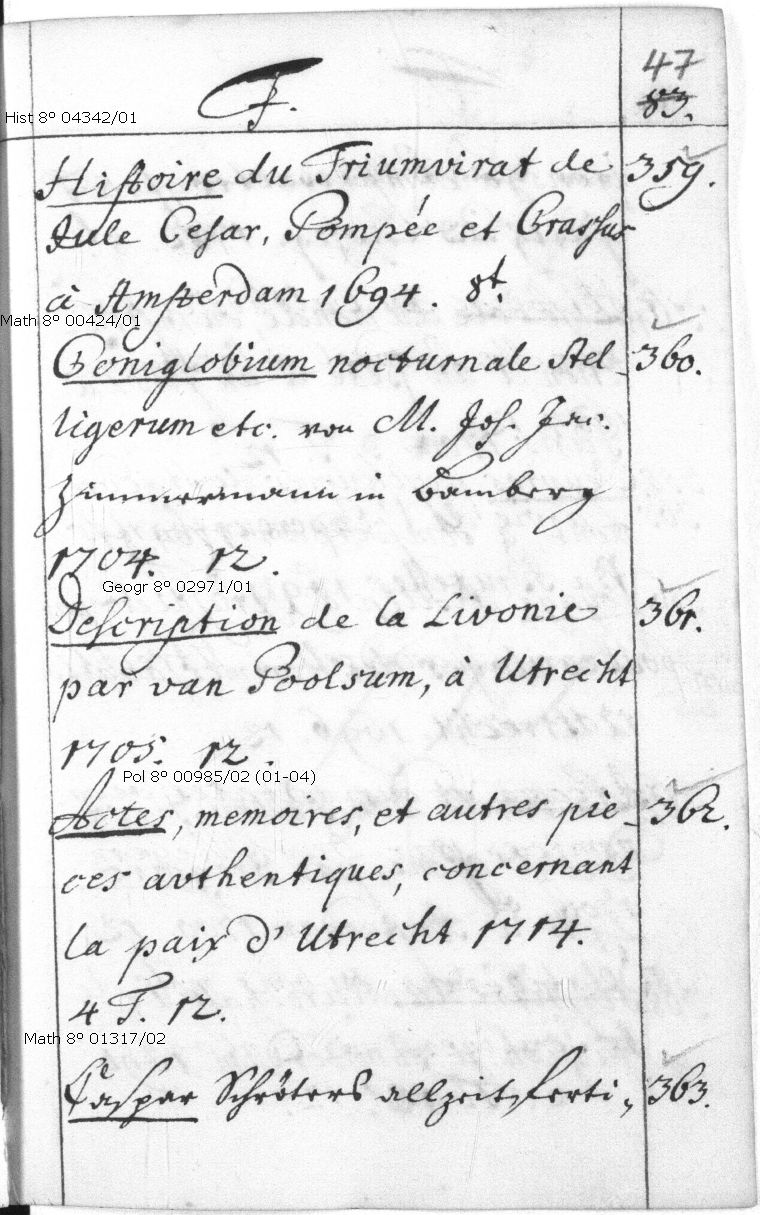 47
F.
83.
Hist 8º 04342/01
Histoire du Triumvirat de 359.
Jule Cesar, Pompée et Crassus
à Amsterdam 1694. 8t.
Math 8º 00424/01
Coniglobium nocturnale Stel- 360.
ligerum etc. von M. Joh. Jac.
Zimmermann in Bamberg
1704. 12.
Geogr 8º 02971/01
Description de la Livonie 361.
par van Poolsum, à Utrecht
1705. 12.
Pol 8º 00985/02 (01-04)
Actes, memoires, et autres piè- 362.
ces avthentiques, concernant
la paix d'Utrecht 1714.
4 T. 12.
Math 8º 01317/02
Caspar Schröters allzeit ferti- 363.